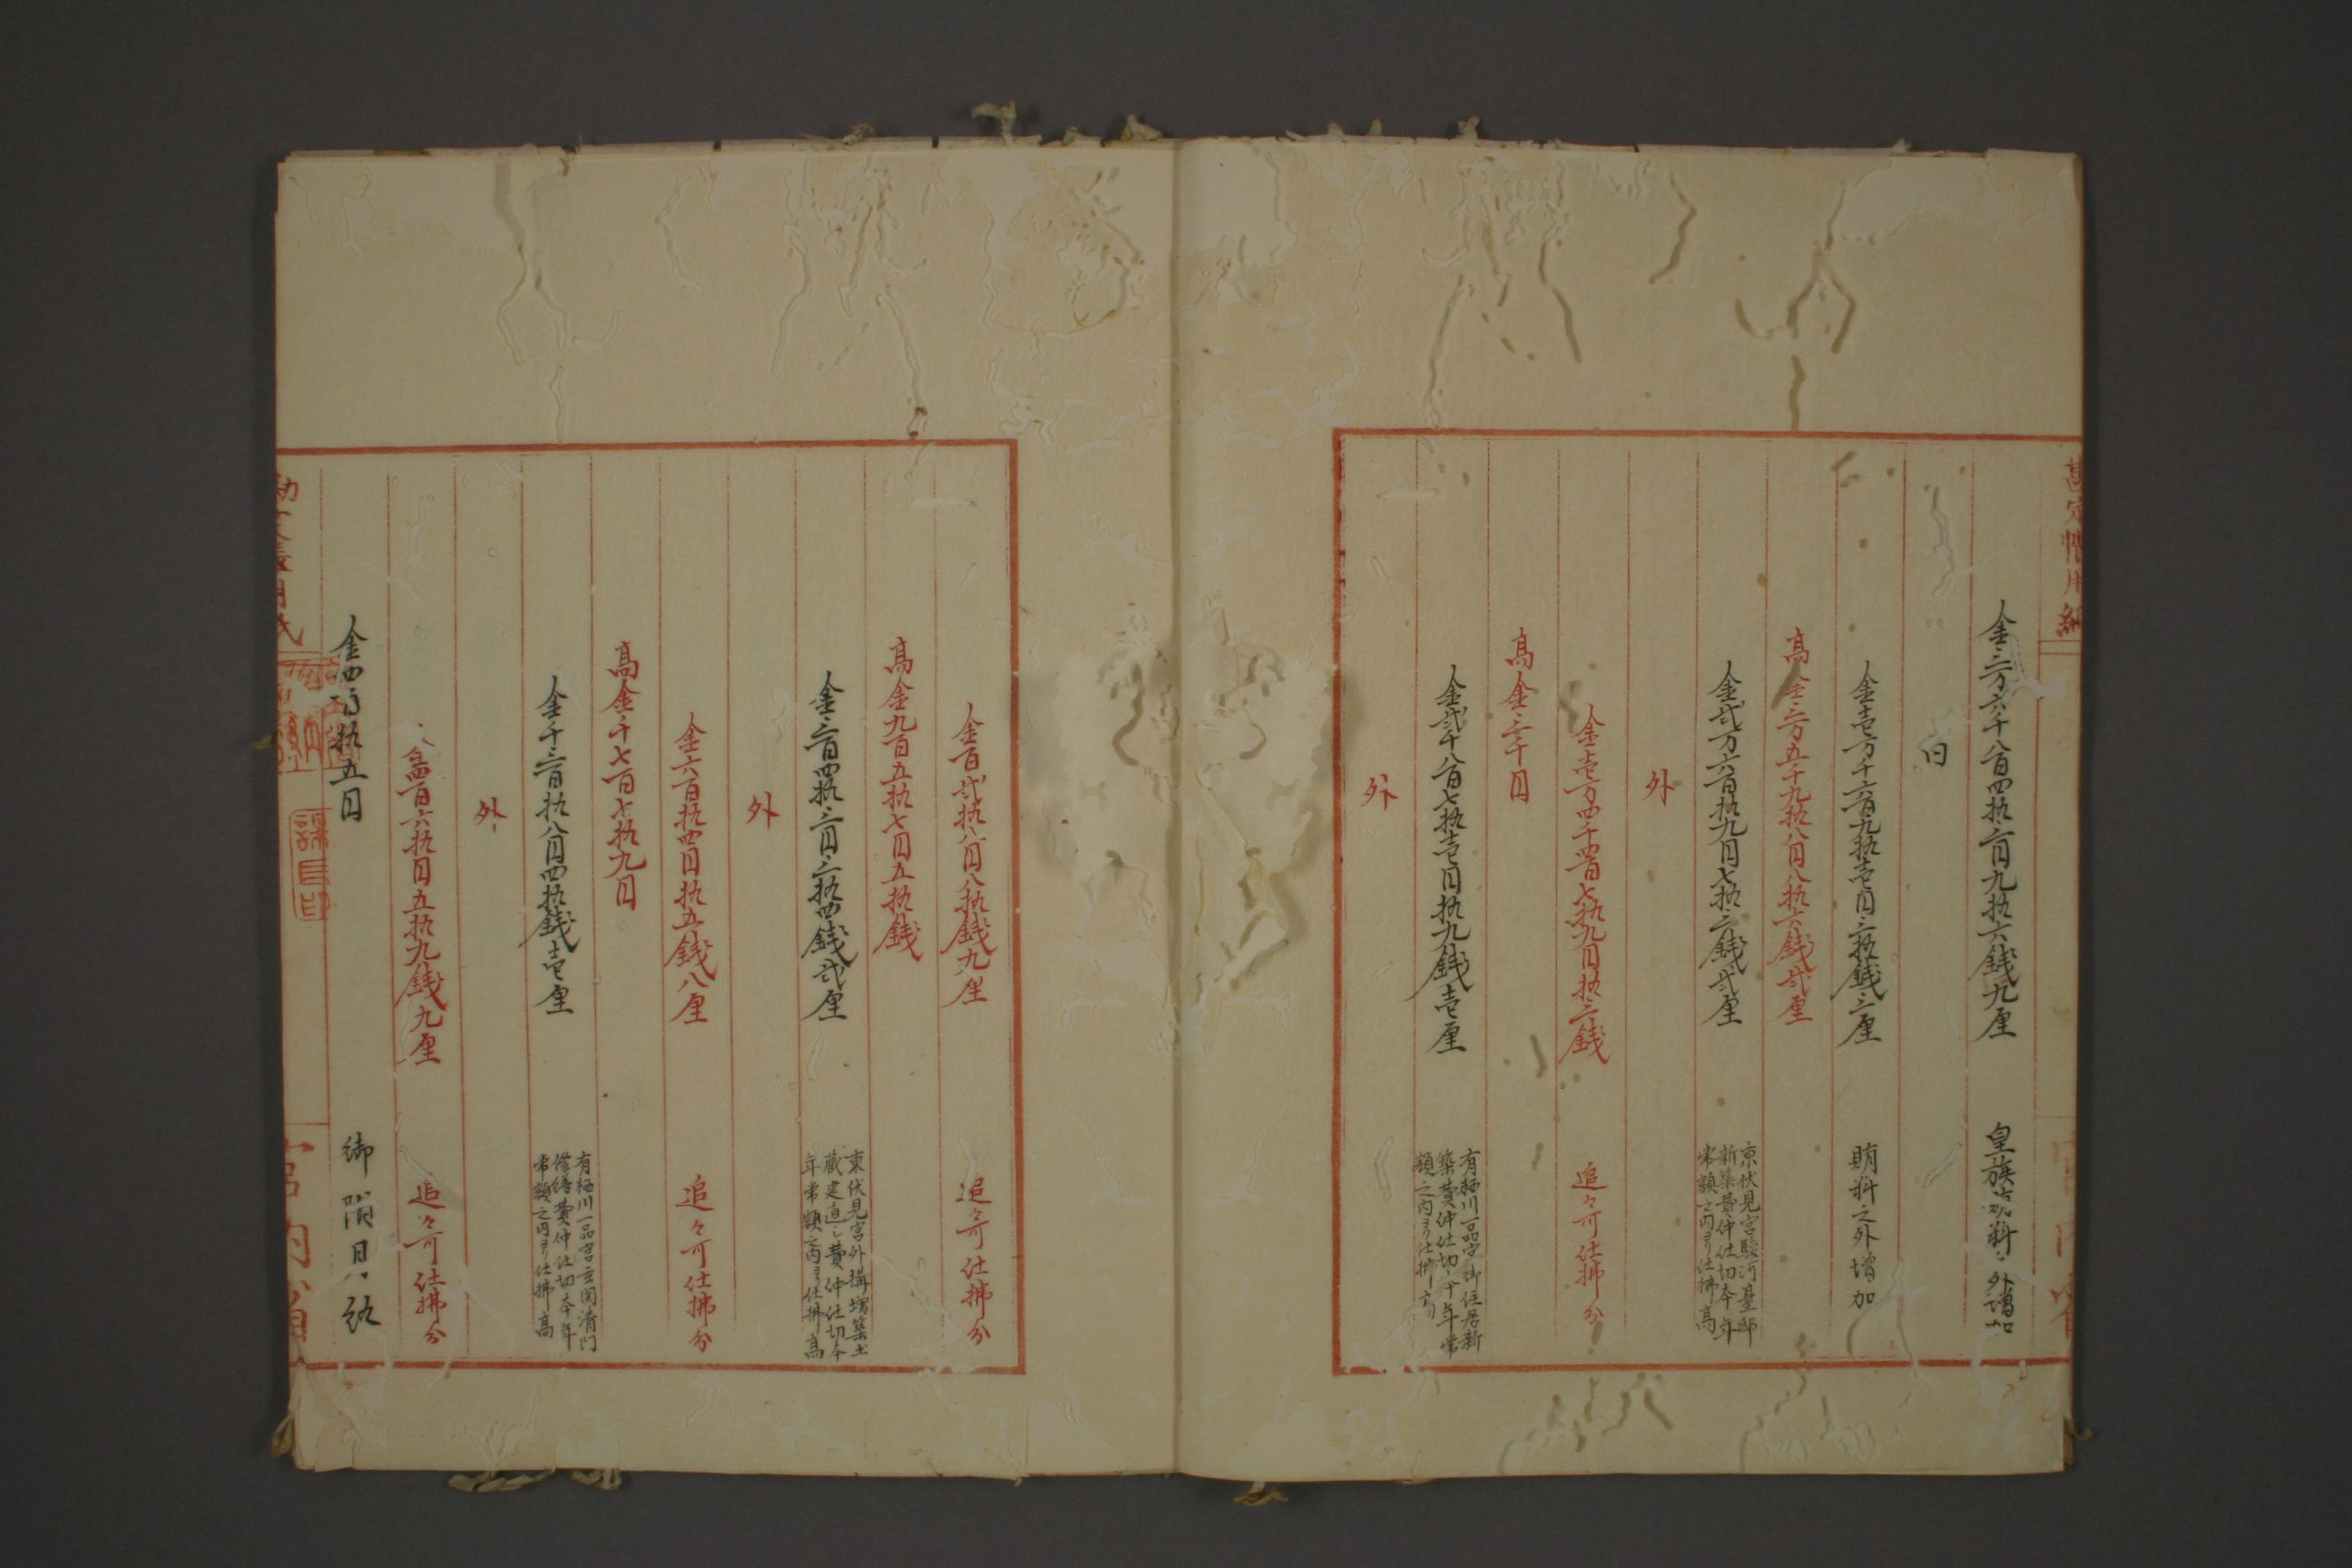 勘定帳用紙
金三万六千八百四拾三円九拾六銭九厘 皇族賄料之外増加
内
金壱万千六百九拾壱円三拾銭三厘 賄料之外増加
高金三万五千九拾八円八拾六銭弐厘
金弐万六百拾九円七拾三銭弐厘 京伏見宮駿河臺邸
新築費仲仕切本年
常額之内ヨリ仕拂高
外
金壱万四千四百七拾九円拾三銭 追々可仕拂分
高金三千円
金弐千八百七拾壱円拾九銭壱厘 有栖川一品宮御住居新
築費仲仕切十年常
額之内ヨリ仕拂高
外
金百弐拾八円八拾銭九厘 追々可仕拂分
高金九百五拾七円五拾銭
金三百四拾三円三拾四銭弐厘 東伏見宮外構増築土
蔵建直シ費仲仕切本
年常額之内ヨリ仕拂高
外
金六百拾四円拾五銭八厘 追々可仕拂分
高金千七百七拾九円
金千三百拾八円四拾銭壱厘 有栖川一品宮玄関溝門
修繕費仲仕切本年
常額之内ヨリ仕拂高
外
金四百六拾円五拾九銭九厘 追々可仕拂分
金四百拾五円 御
勘定帳用紙
課長印
宮内省